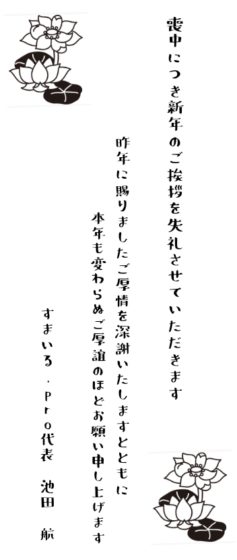 喪中につき新年のご挨拶を失礼させていただきます
昨年に賜りましたご厚情を深謝いたしますとともに
本年も変わらぬご厚誼のほどお願い申し上げます
すまいる．Pro代表　池田　航